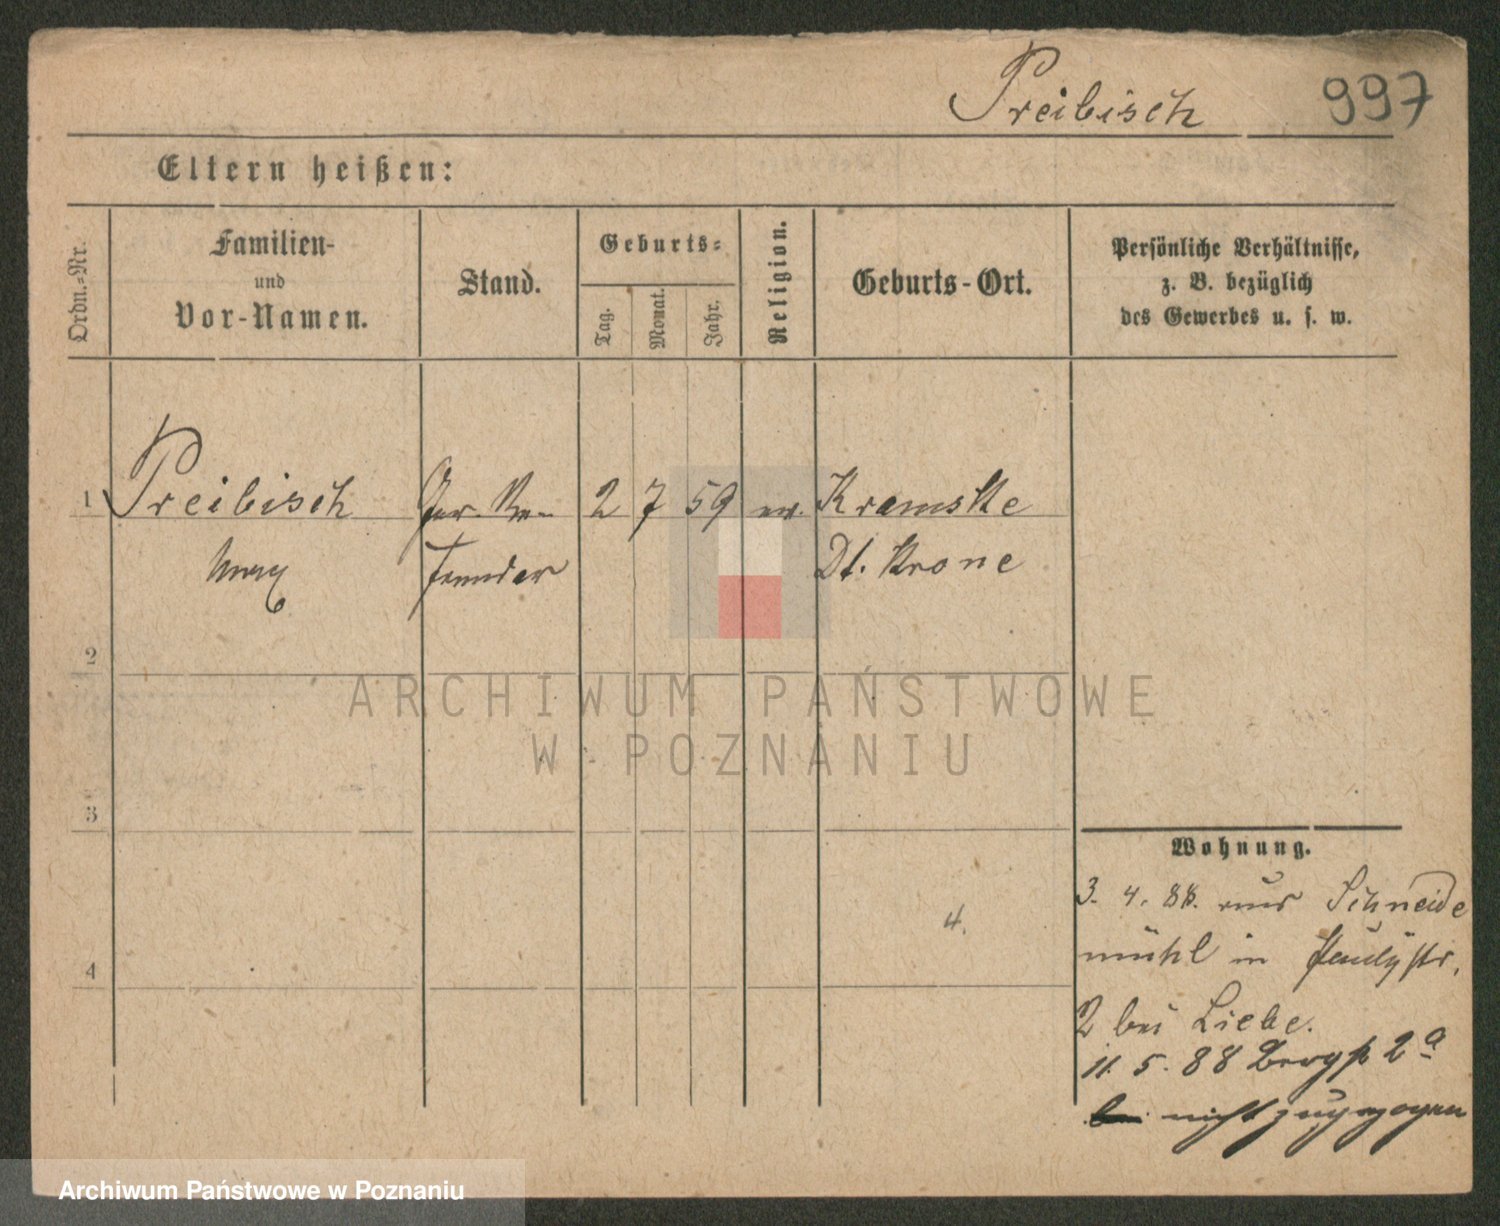 Preibisch 997
Eltern heißen:
Ordn.-Nr.
Familien-
und
Vor-Namen.
Stand.
Geburts-
Tag.
Monat.
Jahr.
Religion.
Geburts-Ort.
Persönliche Verhältnisse,
z. B. bezüglich
des Gewerbes u. s. w.
1 Preibisch Ger. Re- 2 7 59 ev. Kramske
ferendar Dt. Krone
2
3
4
4.
Wohnung.
3. 4. 88. aus Schneide
mühl in Paulystr.
2 bei Liebe.
11. 5. 88 Bergstr 2a
nicht zugezogen
ARCHIWUM PAŃSTWOWE
W POZNANIU
Archiwum Państwowe w Poznaniu